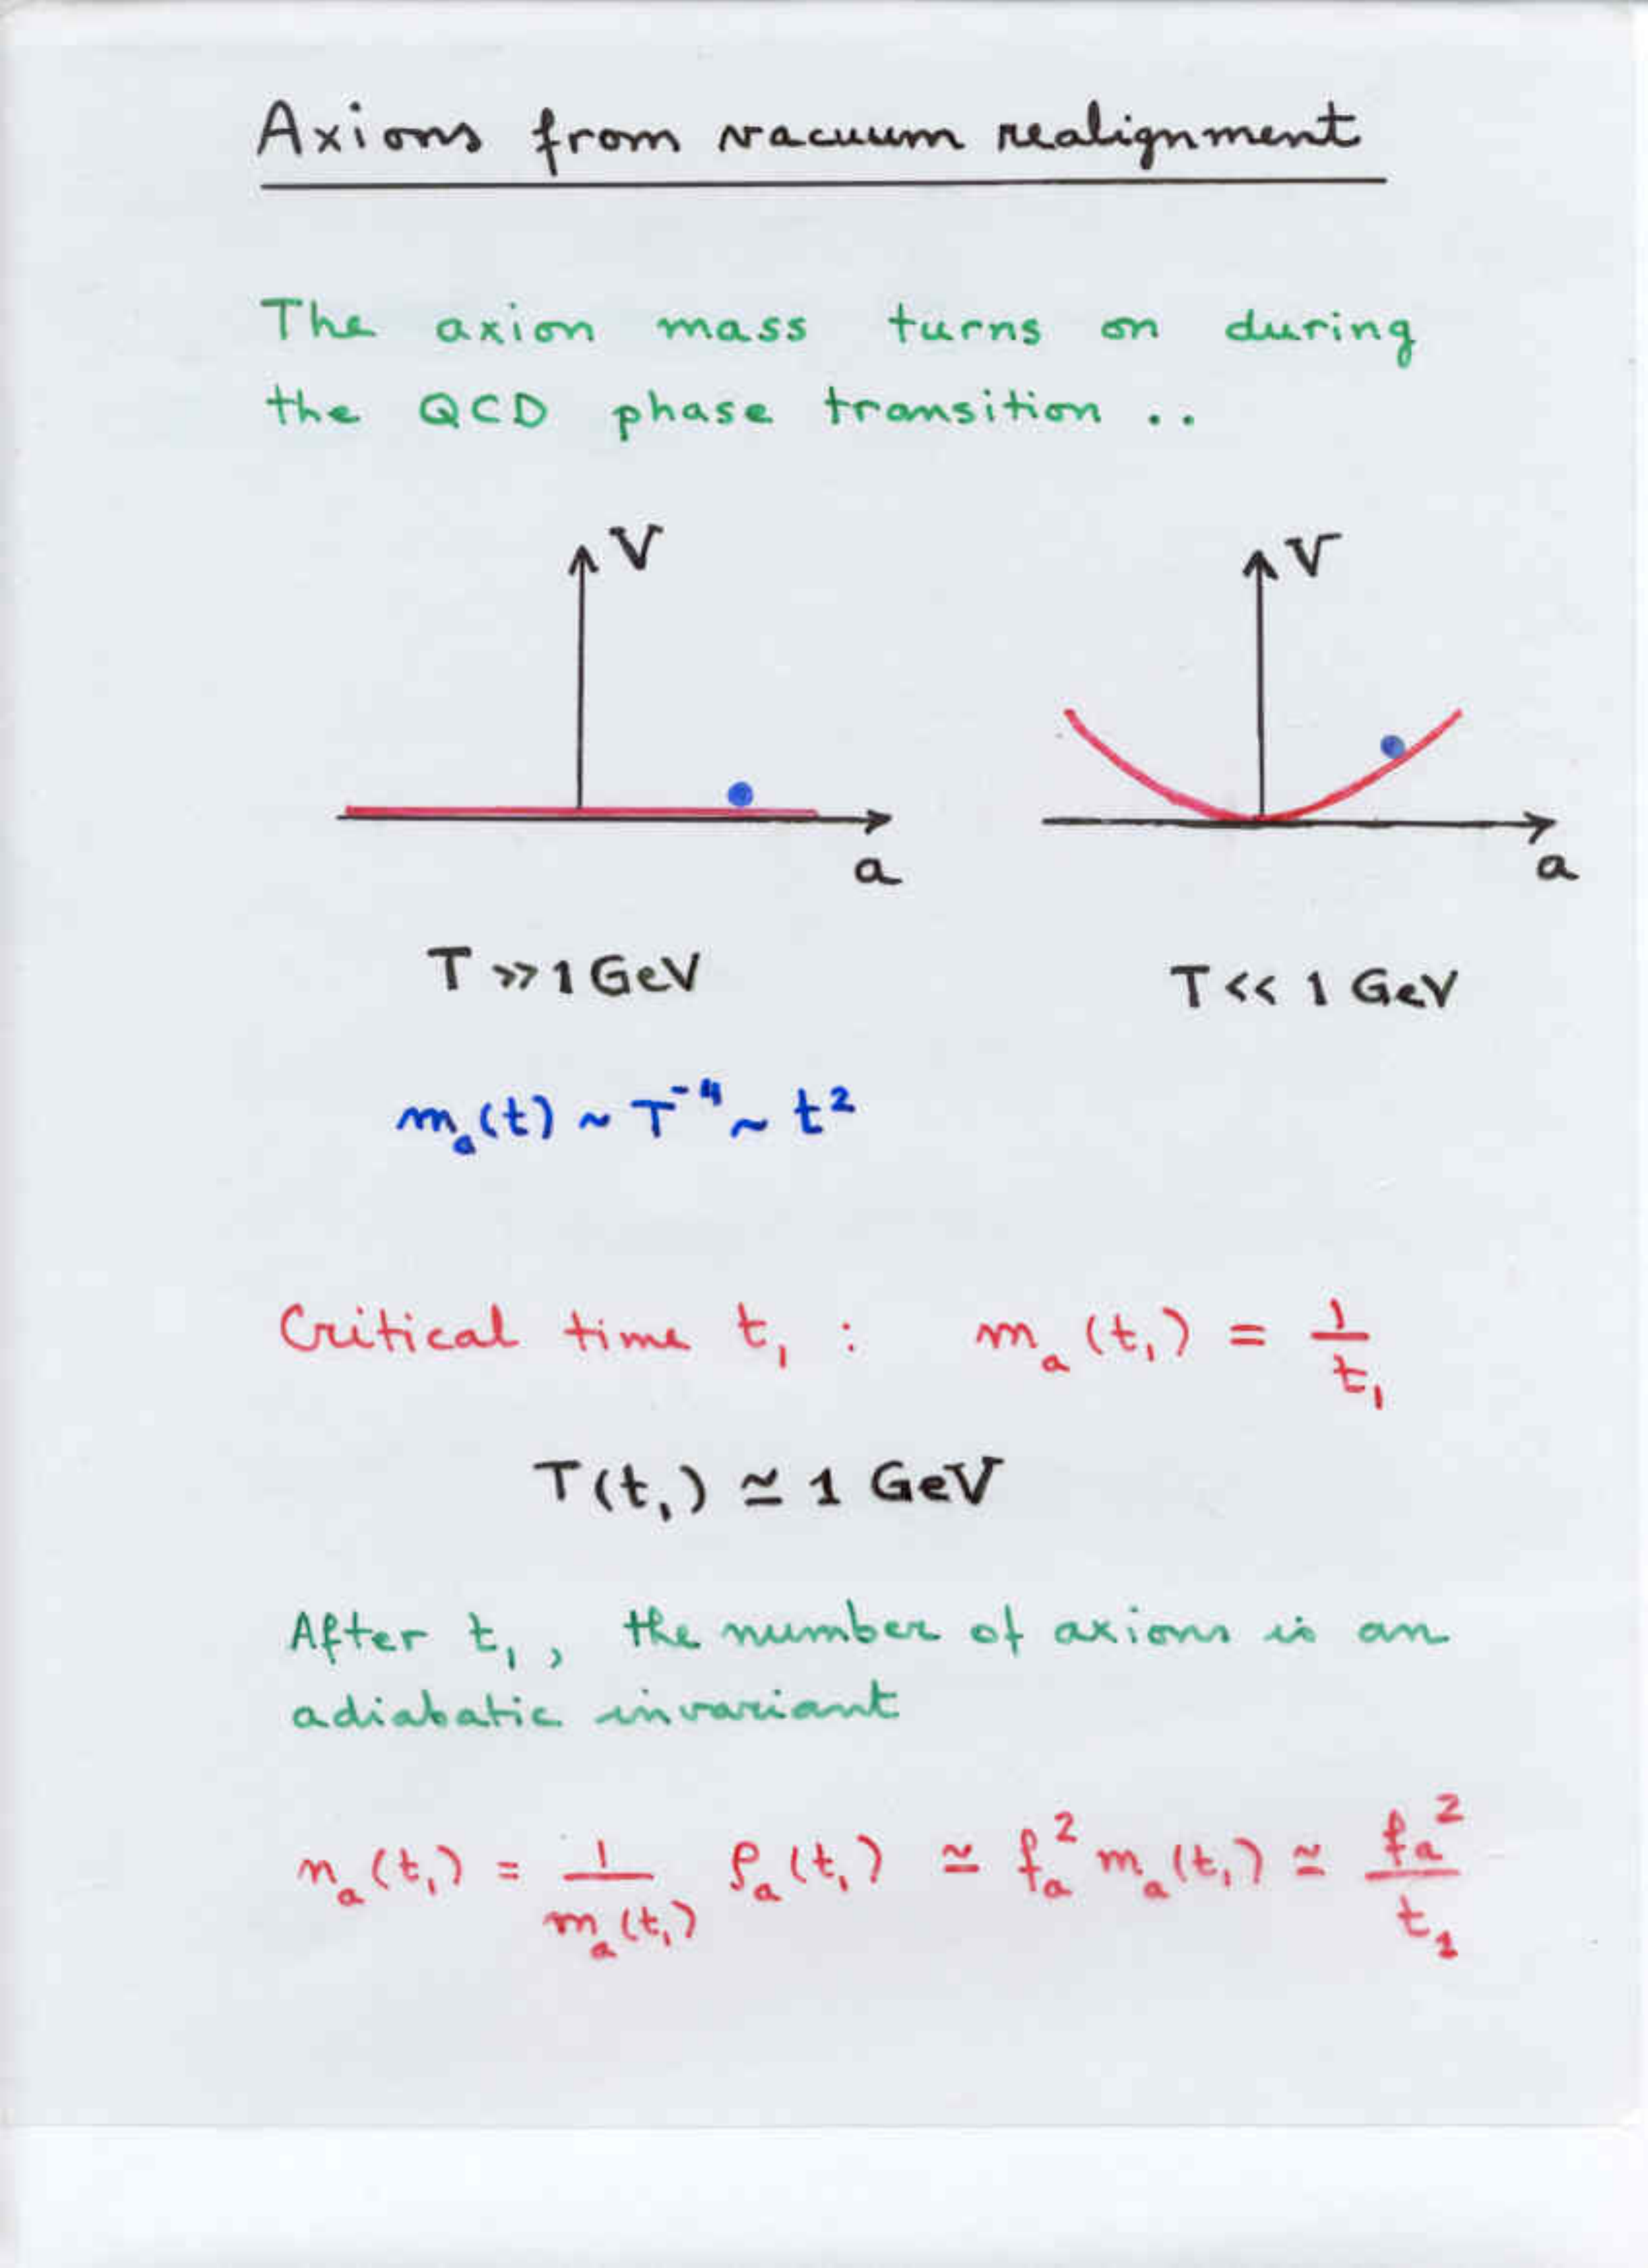 Axions from vacuum realignment
The axion mass turns on during
the QCD phase transition ..
V
a
V
a
T >> 1 GeV
T << 1 GeV
m_a(t) ~ T^-4 ~ t^2
Critical time t_1 : m_a(t_1) = 1/t_1
T(t_1) ≃ 1 GeV
After t_1, the number of axions is an
adiabatic invariant
n_a(t_1) = 1/m_a(t_1) ρ_a(t_1) ≃ f_a^2 m_a(t_1) ≃ f_a^2/t_1